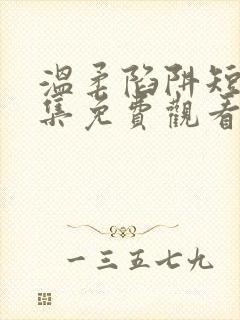 溫柔陷阱短
集免費觀看
一三五七九